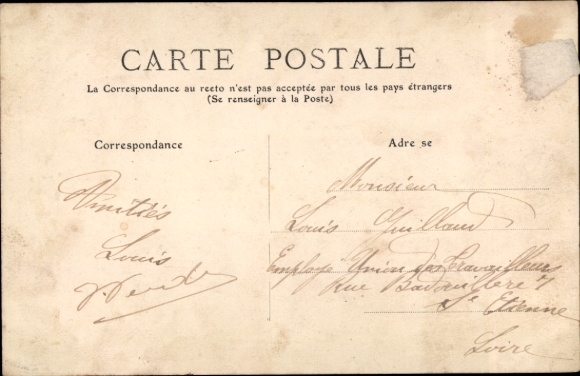 CARTE POSTALE
La Correspondance au recto n'est pas acceptée par tous les pays étrangers
(Se renseigner à la Poste)
Correspondance
Amitiés
Louis
Adresse
Monsieur
Louis Guilland
Employé Union des Travailleurs
Rue
St Etienne
Loire